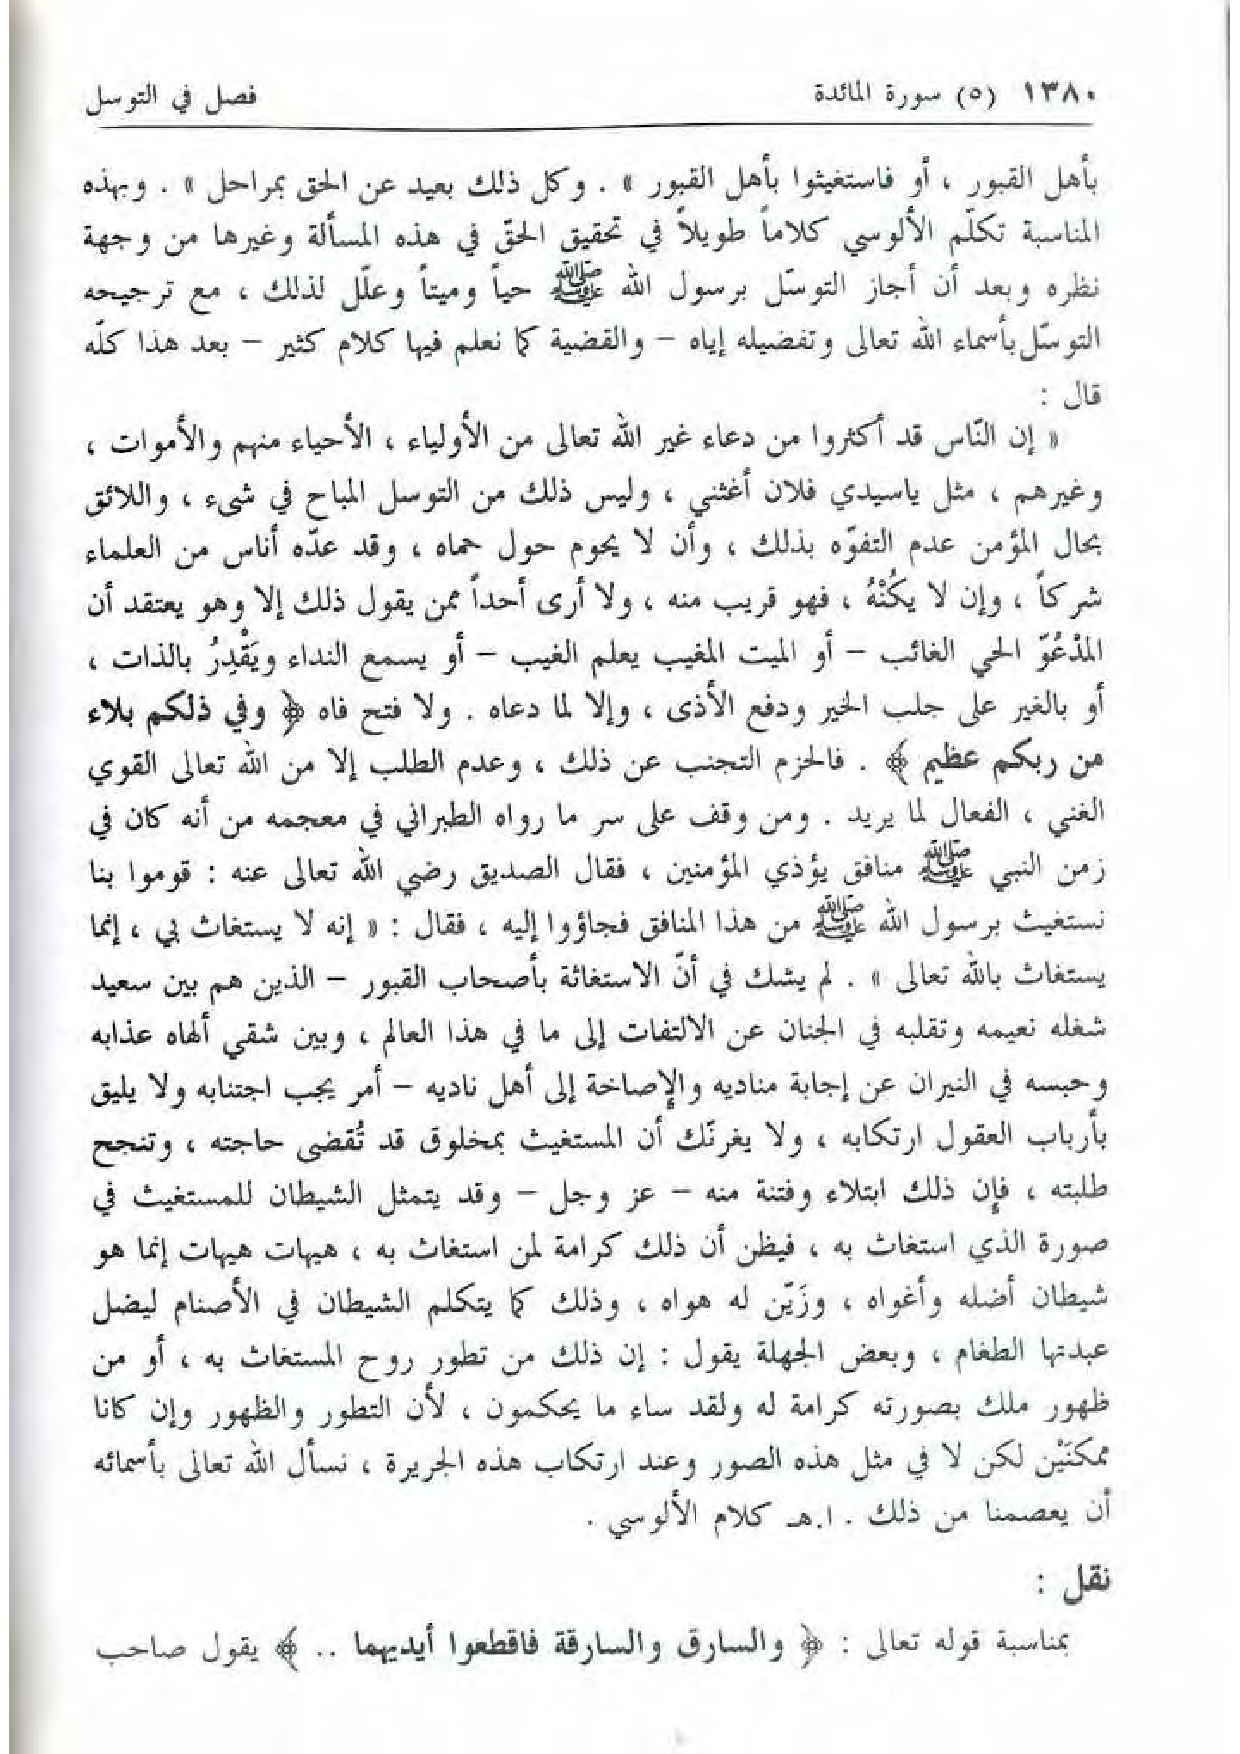 ١٣٨٠ (٥) سورة المائدة فصل في التوسل
بأهل القبور ، أو فاستغيثوا بأهل القبور » . وكل ذلك بعيد عن الحق بمراحل » . وبهذه
المناسبة تكلّم الألوسي كلاماً طويلاً في تحقيق الحقّ في هذه المسألة وغيرها من وجهة
نظره وبعد أن أجاز التوسّل برسول الله ﷺ حياً وميتاً وعلّل لذلك ، مع ترجيحه
التوسّل بأسماء الله تعالى وتفضيله إياه – والقضية كما نعلم فيها كلام كثير – بعد هذا كلّه
قال :
« إن النّاس قد أكثروا من دعاء غير الله تعالى من الأولياء ، الأحياء منهم والأموات ،
وغيرهم ، مثل ياسيدي فلان أغثني ، وليس ذلك من التوسل المباح في شىء ، واللائق
بحال المؤمن عدم التفوّه بذلك ، وأن لا يحوم حول حماه ، وقد عدّه أناس من العلماء
شركاً ، وإن لا يكُنْهُ ، فهو قريب منه ، ولا أرى أحداً ممن يقول ذلك إلا وهو يعتقد أن
المدْعُوّ الحي الغائب – أو الميت المغيب يعلم الغيب – أو يسمع النداء ويَقْدِرُ بالذات ،
أو بالغير على جلب الخير ودفع الأذى ، وإلا لما دعاه . ولا فتح فاه ﴿ وفي ذلكم بلاء
من ربكم عظيم ﴾ . فالحزم التجنب عن ذلك ، وعدم الطلب إلا من الله تعالى القوي
الغني ، الفعال لما يريد . ومن وقف على سر ما رواه الطبراني في معجمه من أنه كان في
زمن النبي ﷺ منافق يؤذي المؤمنين ، فقال الصديق رضي الله تعالى عنه : قوموا بنا
نستغيث برسول الله ﷺ من هذا المنافق فجاؤوا إليه ، فقال : « إنه لا يستغاث بي ، إنما
يستغاث بالله تعالى » . لم يشك في أنّ الاستغاثة بأصحاب القبور – الذين هم بين سعيد
شغله نعيمه وتقلبه في الجنان عن الالتفات إلى ما في هذا العالم ، وبين شقي ألهاه عذابه
وحبسه في النيران عن إجابة مناديه والإصاخة إلى أهل ناديه – أمر يجب اجتنابه ولا يليق
بأرباب العقول ارتكابه ، ولا يغرنّك أن المستغيث بمخلوق قد تُقضى حاجته ، وتنجح
طلبته ، فإن ذلك ابتلاء وفتنة منه – عز وجل – وقد يتمثل الشيطان للمستغيث في
صورة الذي استغاث به ، فيظن أن ذلك كرامة لمن استغاث به ، هيهات هيهات إنما هو
شيطان أضله وأغواه ، وزَيّن له هواه ، وذلك كما يتكلم الشيطان في الأصنام ليضل
عبدتها الطغام ، وبعض الجهلة يقول : إن ذلك من تطور روح المستغاث به ، أو من
ظهور ملك بصورته كرامة له ولقد ساء ما يحكمون ، لأن التطور والظهور وإن كانا
ممكنَيْن لكن لا في مثل هذه الصور وعند ارتكاب هذه الجريرة ، نسأل الله تعالى بأسمائه
أن يعصمنا من ذلك . ا.هـ كلام الألوسي .
نقل :
بمناسبة قوله تعالى : ﴿ والسارق والسارقة فاقطعوا أيديهما .. ﴾ يقول صاحب